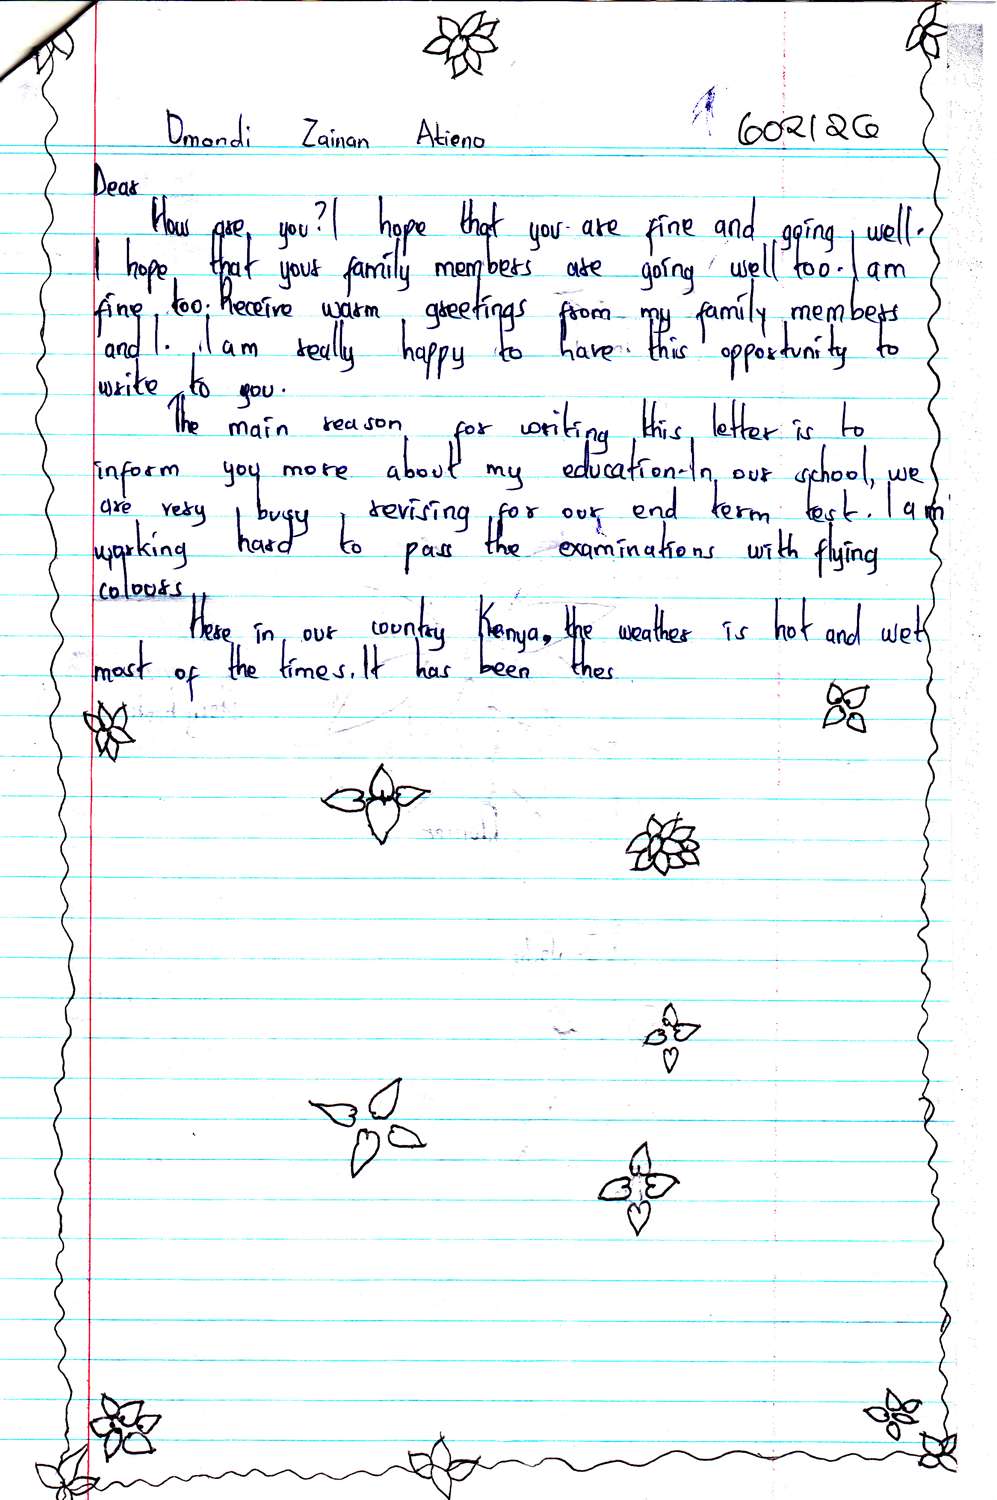 Omondi Zainan Atieno 602126
Dear
How are you? I hope that you are fine and going well.
I hope that your family members are going well too. I am
fine too. Receive warm greetings from my family members
and I. I am really happy to have this opportunity to
write to you.
The main reason for writing this letter is to
inform you more about my education. In our school, we
are very busy revising for our end term test. I am
working hard to pass the examinations with flying
colours.
Here in our country Kenya, the weather is hot and wet
most of the times. It has been ther